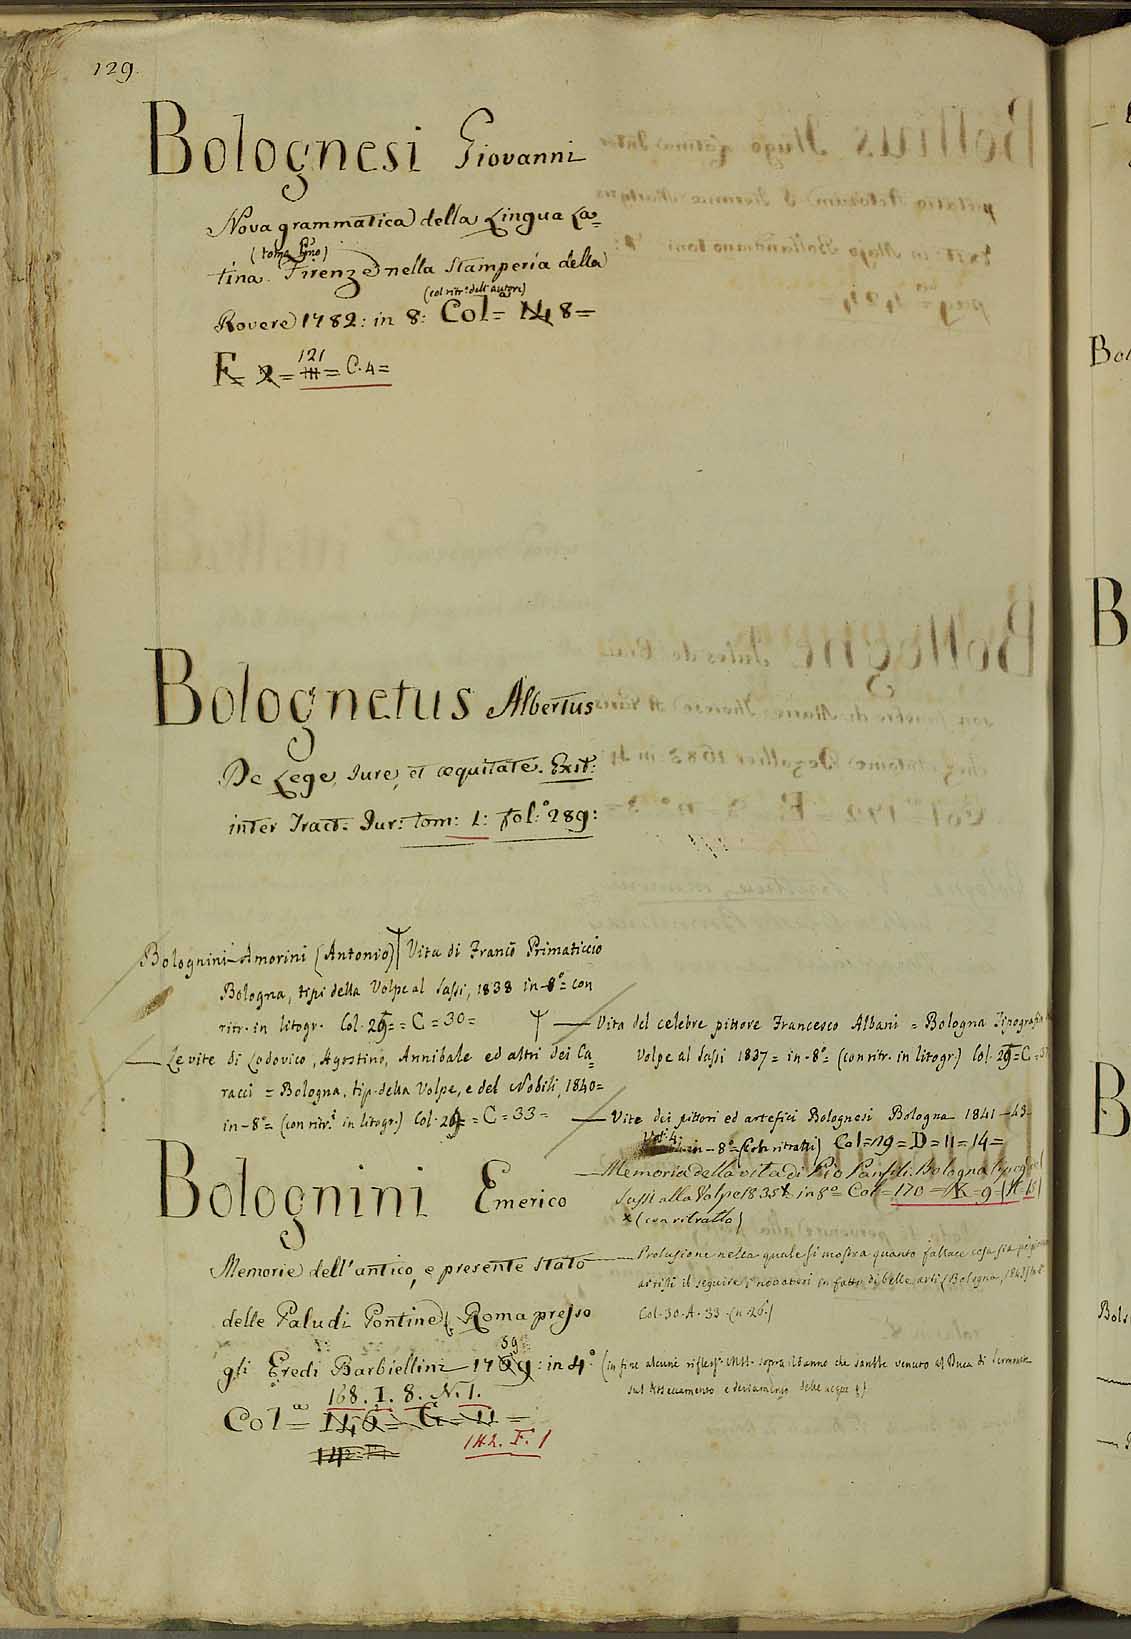 129.
Bolognesi Giovanni
Nova grammatica della Lingua La=
(tomo pmo)
tina. Firenze nella Stamperia della
(col ritr.o dell'autore)
Rovere 1782: in 8: Col= 8=
121
F= 2= = C. 4=
Bolognetus Albertus
De Lege, Iure, et æquitate. Exit:
inter Tract: Iur: tom: 1: fol:o 289:
Bolognini-Amorini (Antonio) Vita di Franco Primaticcio
Bologna, tipi della Volpe al Sassi, 1838 in-8o= con
ritr. in litogr. Col. 29= = C = 30=
— Vita del celebre pittore Francesco Albani = Bologna Tipografia
Volpe al Sassi 1837 = in-8o= (con ritr. in litogr.) Col. 29=C=
— Le vite di Lodovico, Agostino, Annibale ed altri dei Ca=
racci = Bologna, tip. della Volpe, e del Nobili, 1840=
in-8o= (con ritr.i in litogr.) Col. 29= = C = 33=
— Vite dei pittori ed artefici Bolognesi Bologna 1841-43-
Vol. 4. in-8o= (con ritratti) Col=19=D=11=14=
— Memoria della vita di Pio Panfili. Bologna tipogr.
Sassi alla Volpe 1835 x in 8o= Col= 170 = K = 9=
x (con ritratto)
— Prolusione nella quale si mostra quanto fallace cosa sia
artisti il seguire i novatori in fatto di belle arti (Bologna, 1843)
Col. 30. A. 33. (n. 26.)
Bolognini Emerico
Memorie dell'antico, e presente stato
delle Paludi Pontine. Roma presso
59
gli Eredi Barbiellini 1769: in 4.o (in fine alcune rifless. MM. sopra il danno che sarebbe venuto al Duca di Sermoneta
sul disseccamento e deviamento delle acque)
168. I. 8. N. 1.
Col=a 146= G= 11 =
142. F. 1